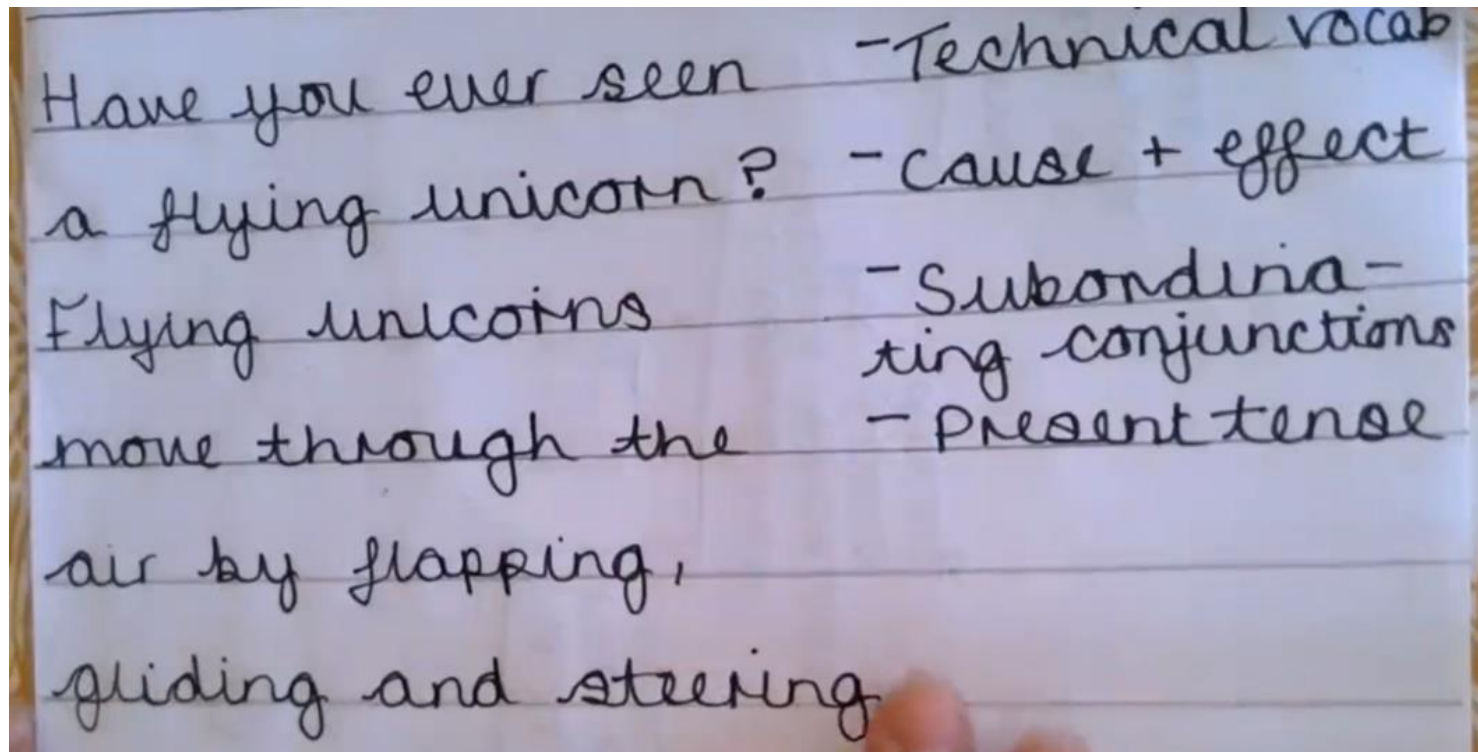 Have you ever seen
a flying unicorn?
Flying unicorns
move through the
air by flapping,
gliding and steering
-Technical vocab
-cause + effect
-Subordina-
ting conjunctions
-Present tense